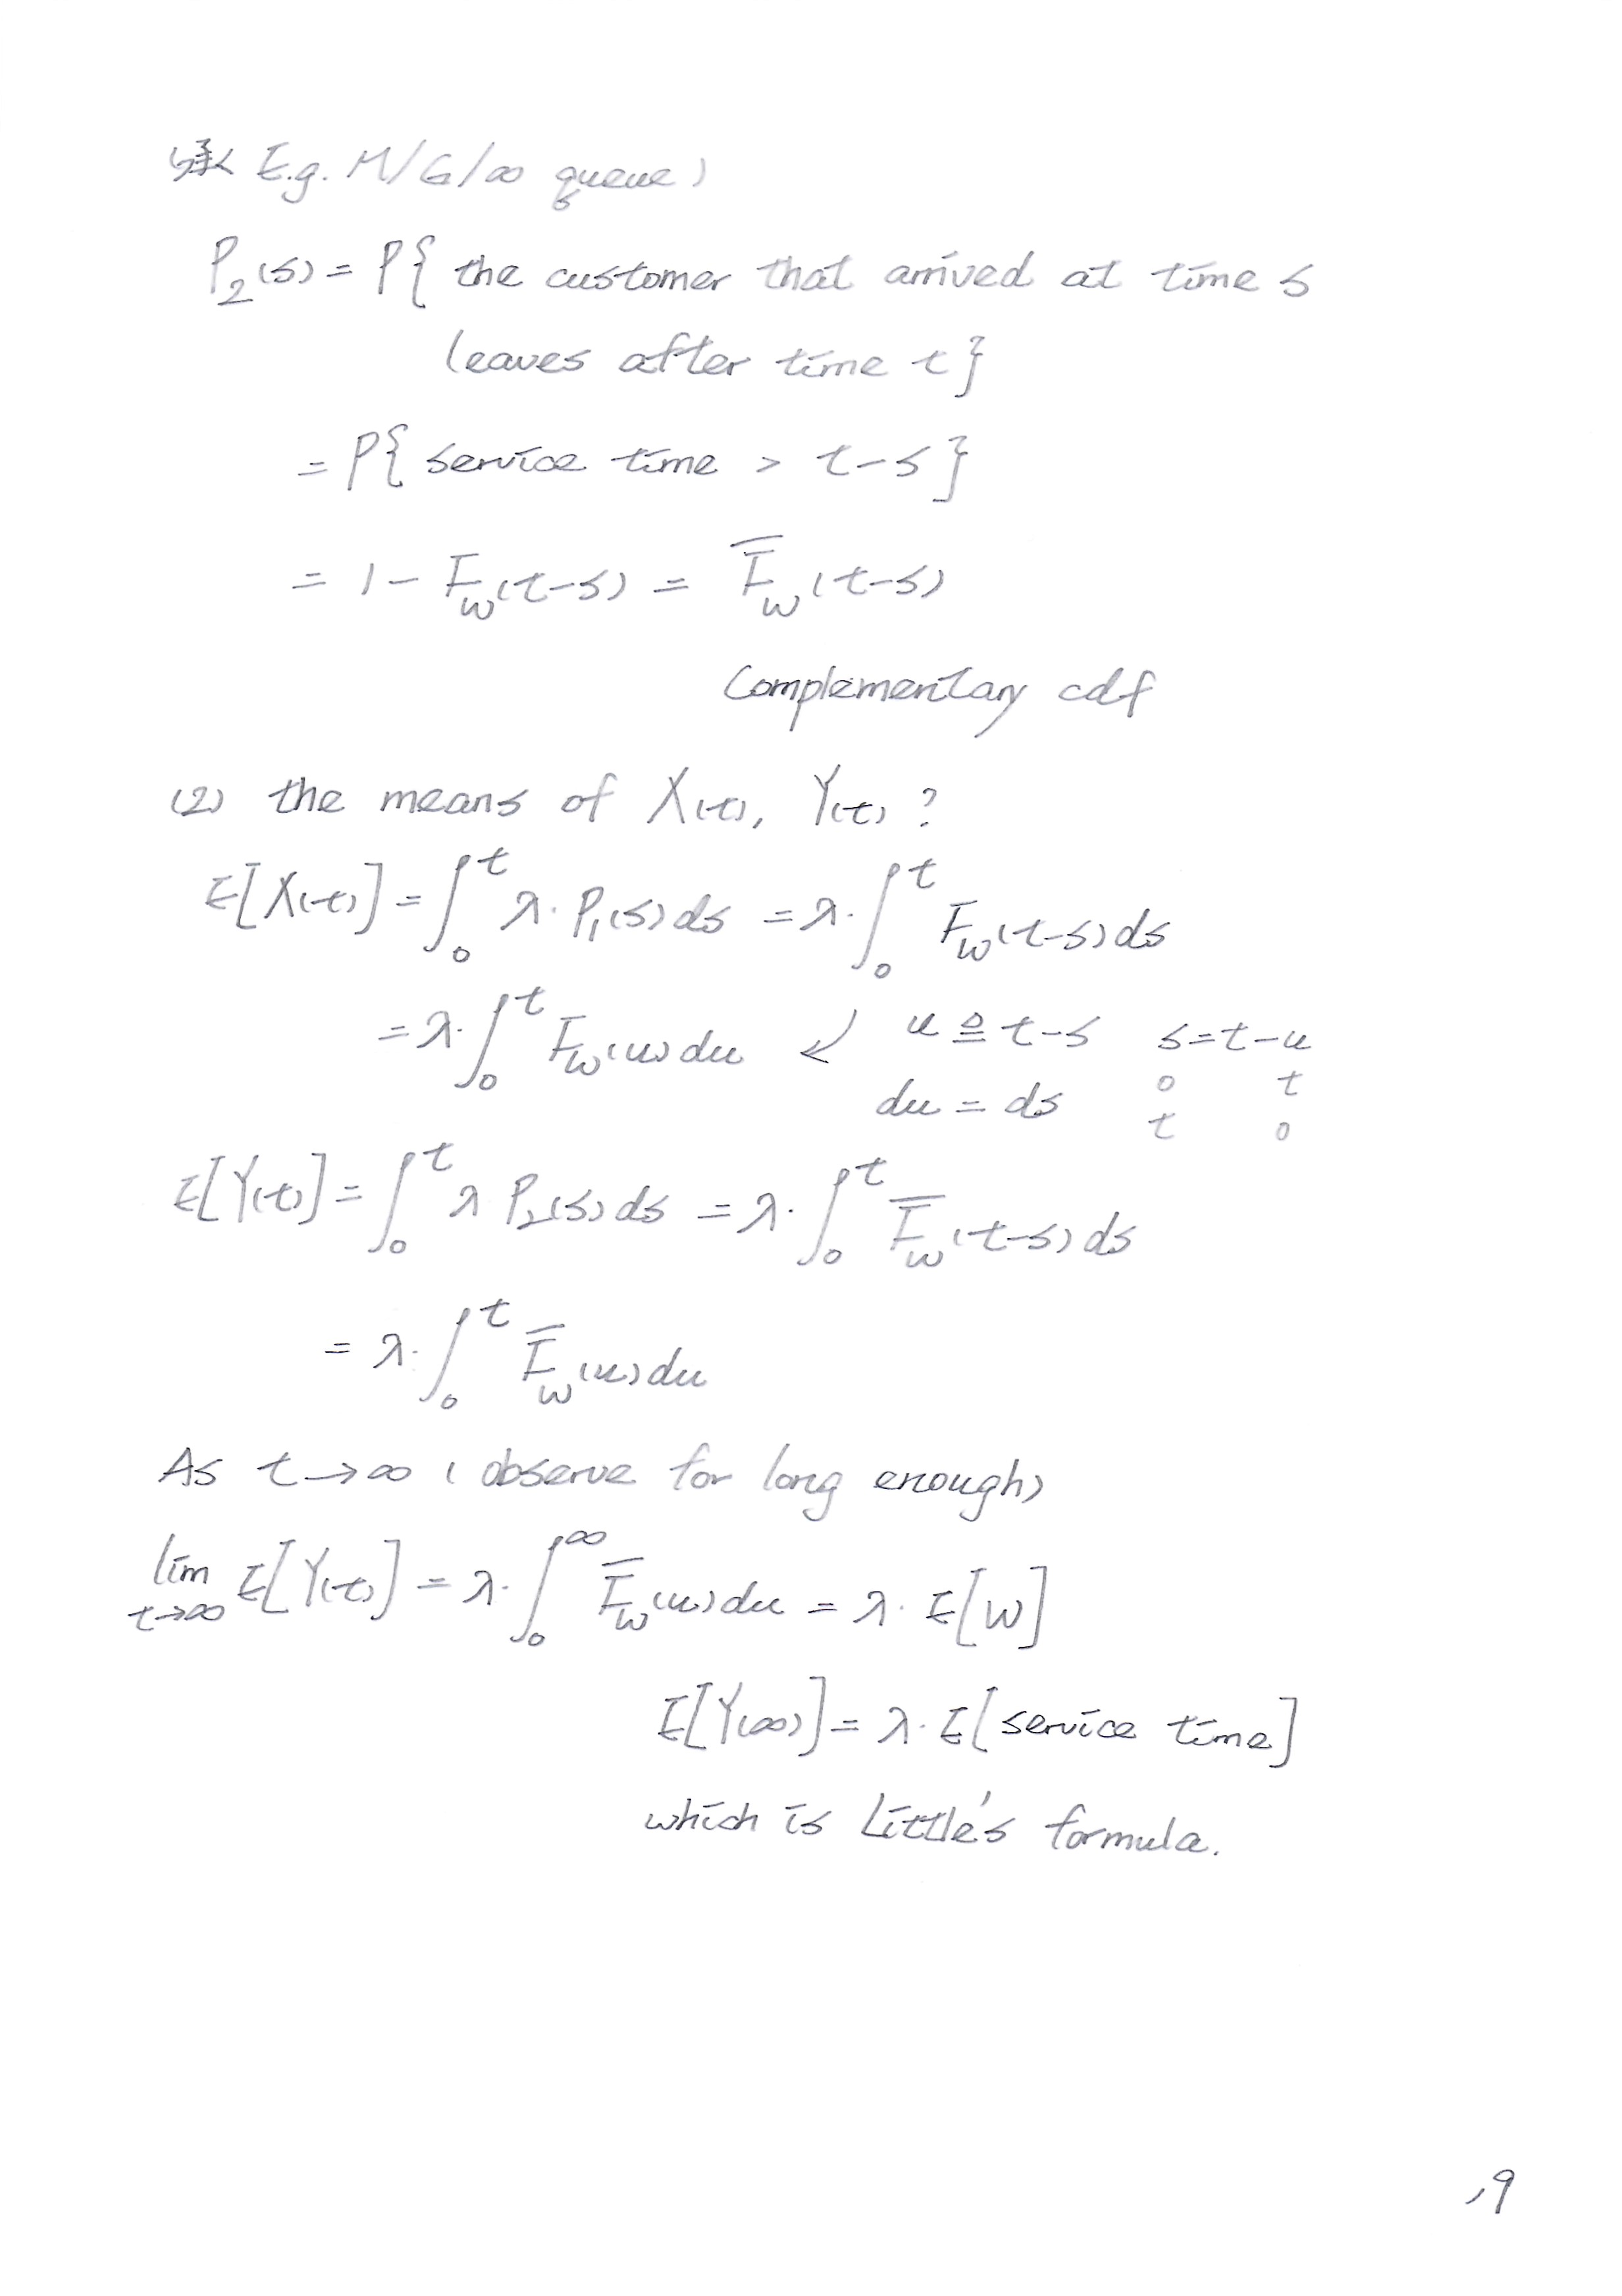 (承 E.g. M/G/∞ queue)
P₂(s) = P{ the customer that arrived at time s
leaves after time t }
= P{ service time > t-s }
= 1 - F_W(t-s) = F̅_W(t-s)
Complementary cdf
(2) the means of X(t), Y(t) ?
E[X(t)] = ∫₀ᵗ λ· P₁(s) ds = λ· ∫₀ᵗ F_W(t-s) ds
= λ· ∫₀ᵗ F_W(u) du ↙ u ≜ t-s s = t-u
du = ds 0 t
t 0
E[Y(t)] = ∫₀ᵗ λ P₂(s) ds = λ· ∫₀ᵗ F̅_W(t-s) ds
= λ· ∫₀ᵗ F̅_W(u) du
As t → ∞ ( observe for long enough)
lim t→∞ E[Y(t)] = λ· ∫₀^∞ F̅_W(u) du = λ· E[W]
E[Y(∞)] = λ· E[service time]
which is Little's formula.
,9